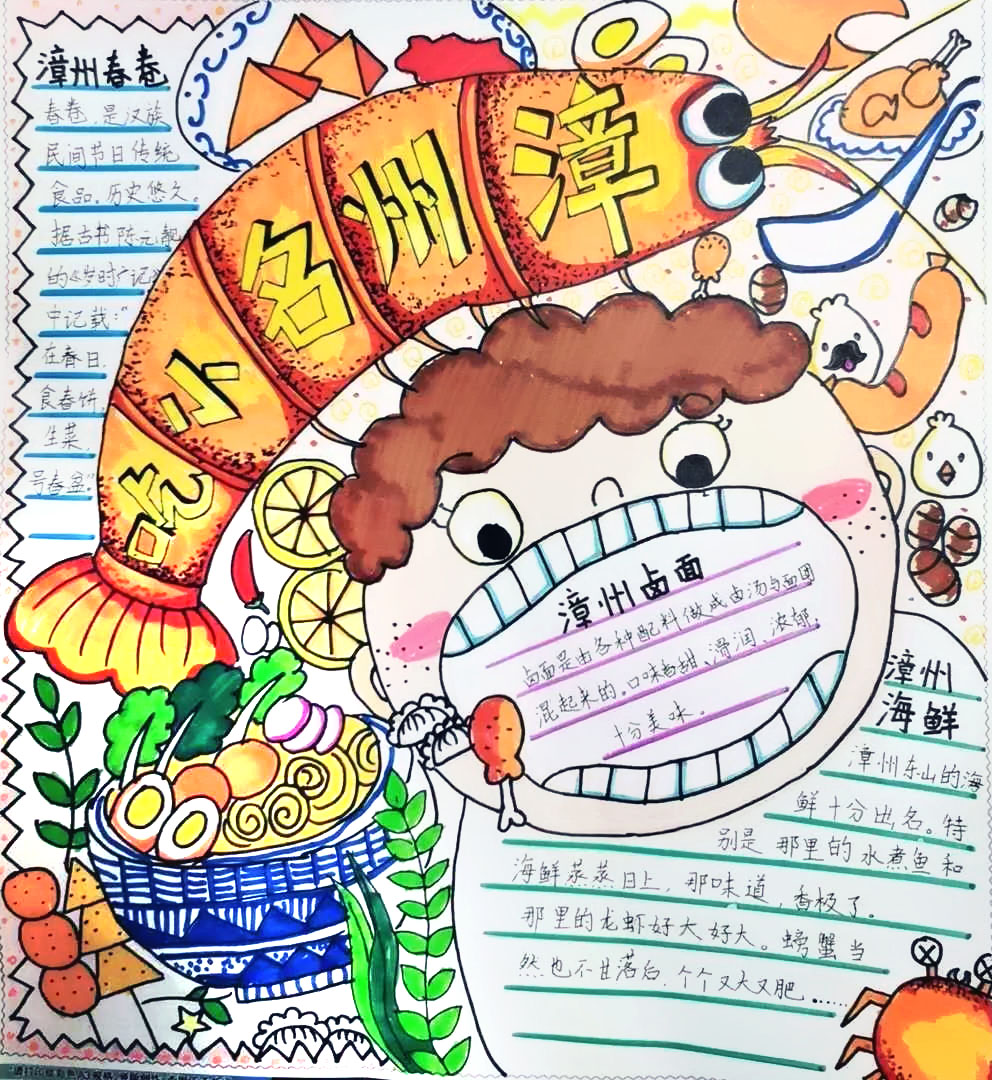 漳州小名吃
漳州春卷
春卷,是汉族
民间节日传统
食品。历史悠久
据古书陈元靓
的《岁时广记》
中记载:“
在春日,
食春饼,
生菜,
号春盘。”
漳州卤面
卤面是由各种配料做成卤汤与面团
混起来的。口味香甜、滑润、浓郁,
十分美味。
漳州
海鲜
漳州东山的海
鲜十分出名。特
别是那里的水煮鱼和
海鲜蒸蒸日上,那味道,香极了。
那里的龙虾好大好大。螃蟹当
然也不甘落后,个个又大又肥……